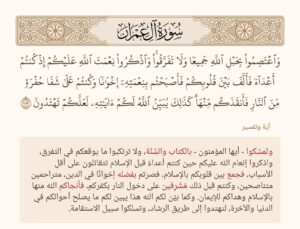 سُورَةُ آلِ عِمْرَانَ
وَٱعْتَصِمُوا۟ بِحَبْلِ ٱللَّهِ جَمِيعًا وَلَا تَفَرَّقُوا۟ ۚ وَٱذْكُرُوا۟ نِعْمَتَ ٱللَّهِ عَلَيْكُمْ إِذْ كُنتُمْ
أَعْدَآءً فَأَلَّفَ بَيْنَ قُلُوبِكُمْ فَأَصْبَحْتُم بِنِعْمَتِهِۦٓ إِخْوَٰنًا وَكُنتُمْ عَلَىٰ شَفَا حُفْرَةٍ
مِّنَ ٱلنَّارِ فَأَنقَذَكُم مِّنْهَا ۗ كَذَٰلِكَ يُبَيِّنُ ٱللَّهُ لَكُمْ ءَايَٰتِهِۦ لَعَلَّكُمْ تَهْتَدُونَ ١٠٣
آية وتفسير
وتمسَّكوا - أيها المؤمنون - بالكتاب والسُّنَّة، ولا ترتكبوا ما يوقعكم في التفرق،
واذكروا إنعام الله عليكم حين كنتم أعداءً قبل الإسلام تتقاتلون على أقل
الأسباب، فجمع بين قلوبكم بالإسلام، فصرتم بفضله إخوانًا في الدين، متراحمين
متناصحين، وكنتم قبل ذلك مُشْرفين على دخول النار بكفركم، فأنجاكم الله منها
بالإسلام وهداكم للإيمان. وكما بيَّن لكم الله هذا يبين لكم ما يصلح أحوالكم في
الدنيا والآخرة، لتهتدوا إلى طريق الرشاد، وتسلكوا سبيل الاستقامة.